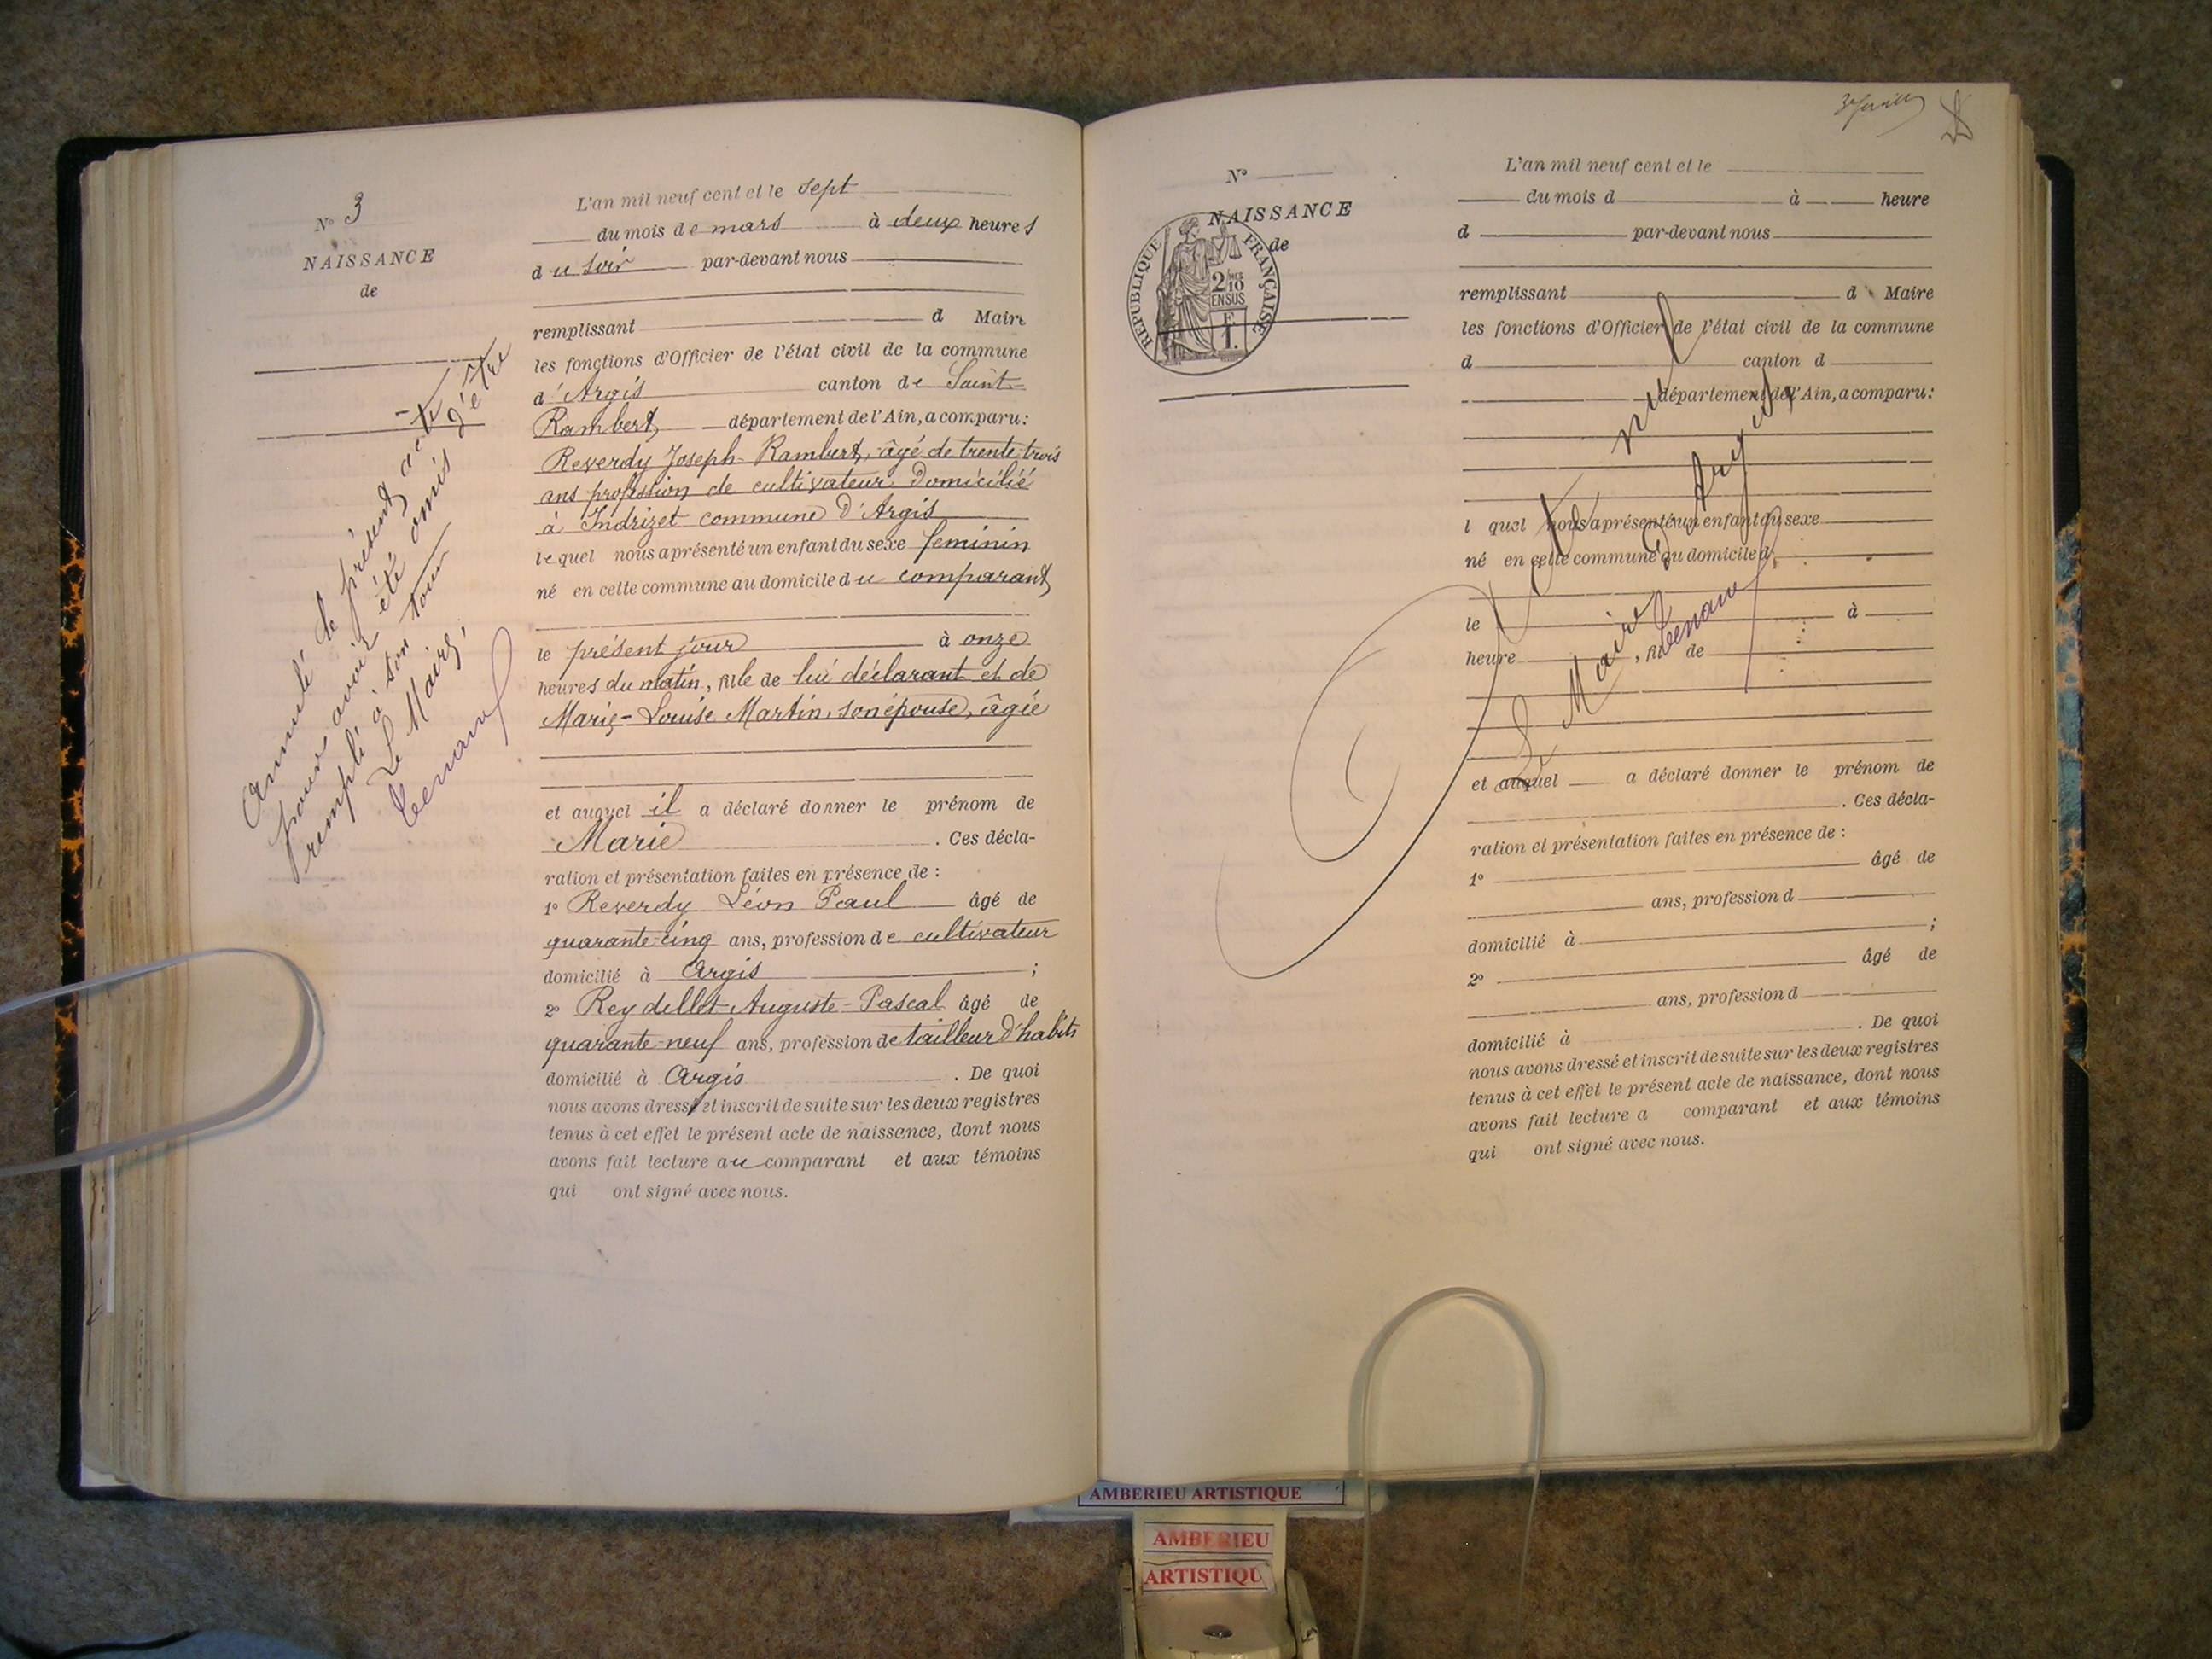 N° 3
NAISSANCE
de
Annulé le présent acte
pour avoir été omis d'être
rempli à son tour
Le Maire,
L'an mil neuf cent et le sept
du mois de mars à deux heures
du soir par-devant nous
remplissant d Maire
les fonctions d'Officier de l'état civil de la commune
d'Argis canton de Saint-
Rambert, département de l'Ain, a comparu:
Reverdy Joseph-Rambert, âgé de trente trois
ans profession de cultivateur domicilié
à Indrizet commune d'Argis
lequel nous a présenté un enfant du sexe feminin
né en cette commune au domicile du comparant
le présent jour à onze
heures du matin, fille de lui déclarant et de
Marie-Louise Martin, son épouse, âgée
et auquel il a déclaré donner le prénom de
Marie . Ces décla-
ration et présentation faites en présence de :
1° Reverdy Léon Paul âgé de
quarante-cinq ans, profession de cultivateur
domicilié à Argis ;
2° Reydellet Auguste-Pascal âgé de
quarante-neuf ans, profession de tailleur d'habits
domicilié à Argis . De quoi
nous avons dressé et inscrit de suite sur les deux registres
tenus à cet effet le présent acte de naissance, dont nous
avons fait lecture au comparant et aux témoins
qui ont signé avec nous.
N°
NAISSANCE
de
REPUBLIQUE FRANÇAISE
2/10
EN SUS
F
1.
L'an mil neuf cent et le
du mois d à heure
d par-devant nous
remplissant d Maire
les fonctions d'Officier de l'état civil de la commune
d canton d
département de l'Ain, a comparu:
nul
l quel nous a présenté un enfant du sexe
né en cette commune au domicile d
le à
heure , fil de
Le Maire
et auquel a déclaré donner le prénom de
. Ces décla-
ration et présentation faites en présence de :
1° âgé de
ans, profession d
domicilié à ;
2° âgé de
ans, profession d
domicilié à . De quoi
nous avons dressé et inscrit de suite sur les deux registres
tenus à cet effet le présent acte de naissance, dont nous
avons fait lecture a comparant et aux témoins
qui ont signé avec nous.
AMBERIEU ARTISTIQUE
AMBERIEU
ARTISTIQU